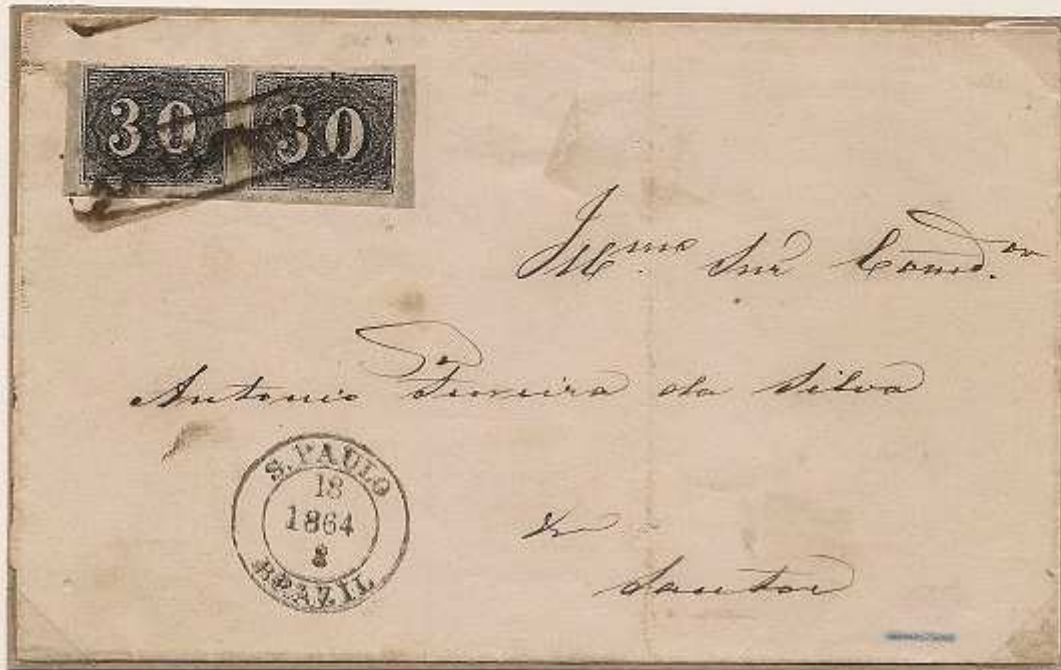 30 30
Illmo. Snr Comdor.
Antonio Ferreira da Silva
S. PAULO
18
1864
8
BRAZIL
Santos